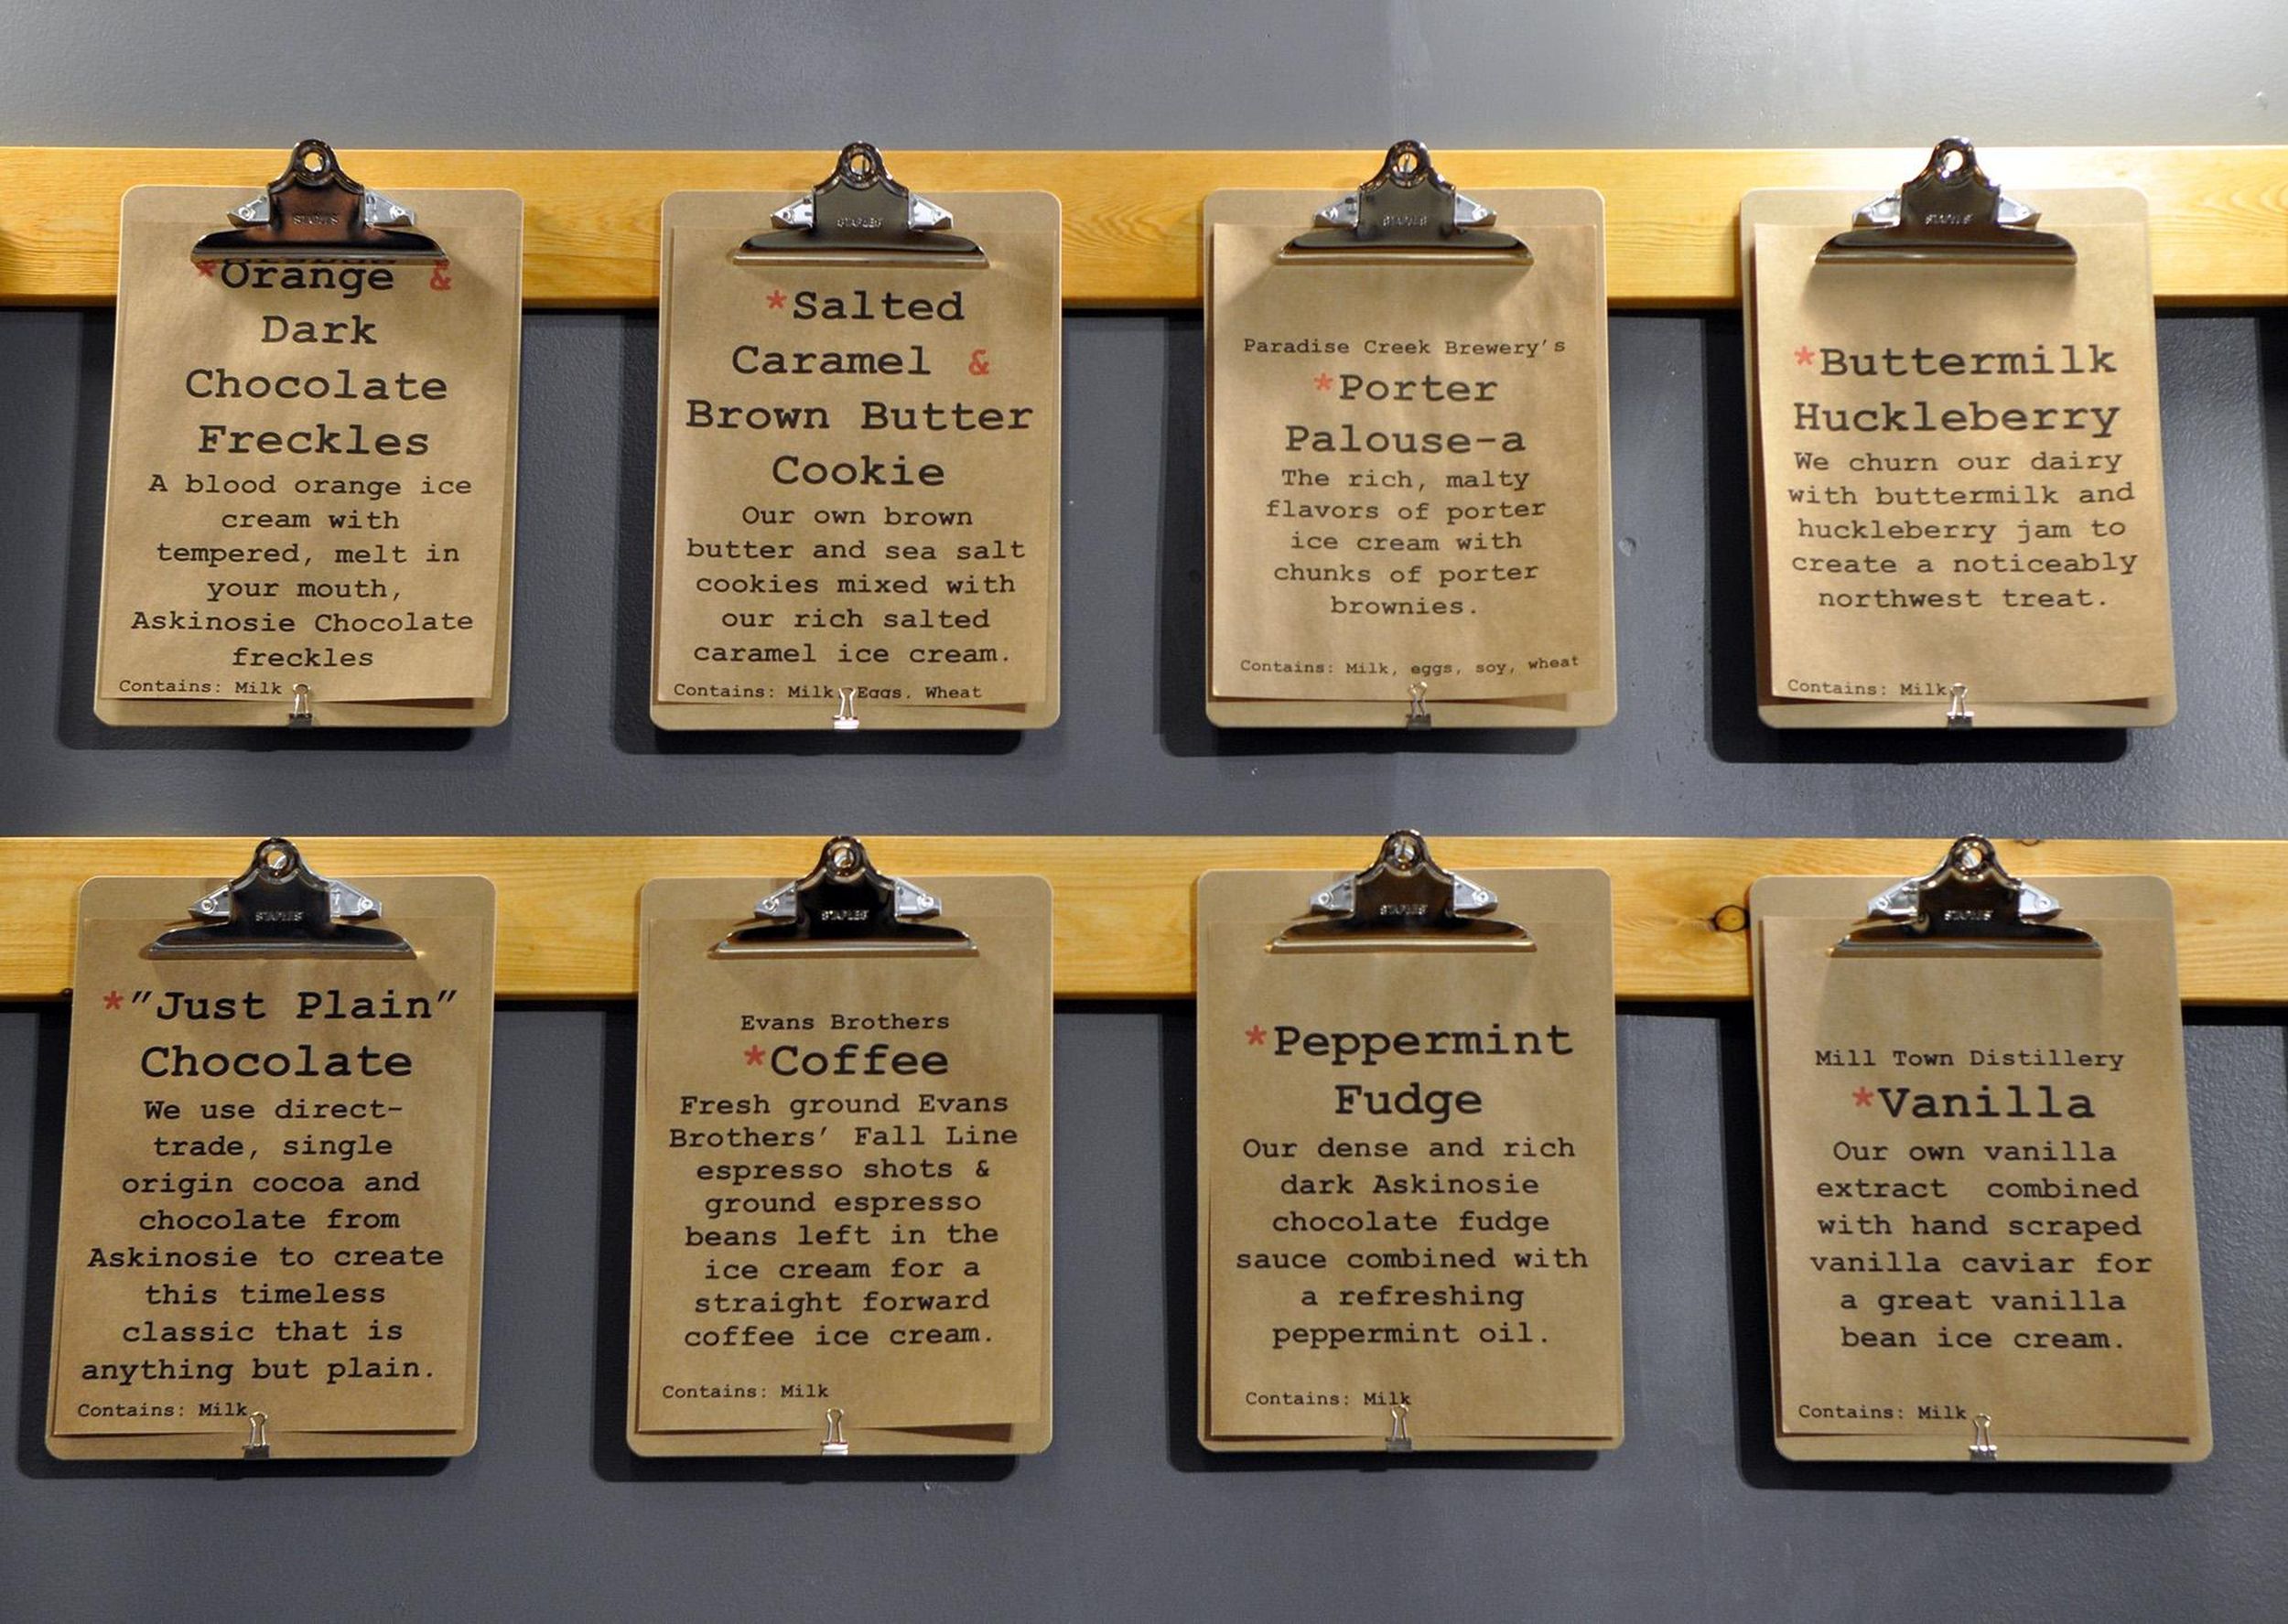 STAPLES
*Orange &
Dark
Chocolate
Freckles
A blood orange ice
cream with
tempered, melt in
your mouth,
Askinosie Chocolate
freckles
Contains: Milk
STAPLES
*Salted
Caramel &
Brown Butter
Cookie
Our own brown
butter and sea salt
cookies mixed with
our rich salted
caramel ice cream.
Contains: Milk, Eggs, Wheat
STAPLES
Paradise Creek Brewery's
*Porter
Palouse-a
The rich, malty
flavors of porter
ice cream with
chunks of porter
brownies.
Contains: Milk, eggs, soy, wheat
STAPLES
*Buttermilk
Huckleberry
We churn our dairy
with buttermilk and
huckleberry jam to
create a noticeably
northwest treat.
Contains: Milk
STAPLES
*"Just Plain"
Chocolate
We use direct-
trade, single
origin cocoa and
chocolate from
Askinosie to create
this timeless
classic that is
anything but plain.
Contains: Milk
STAPLES
Evans Brothers
*Coffee
Fresh ground Evans
Brothers' Fall Line
espresso shots &
ground espresso
beans left in the
ice cream for a
straight forward
coffee ice cream.
Contains: Milk
STAPLES
*Peppermint
Fudge
Our dense and rich
dark Askinosie
chocolate fudge
sauce combined with
a refreshing
peppermint oil.
Contains: Milk
STAPLES
Mill Town Distillery
*Vanilla
Our own vanilla
extract combined
with hand scraped
vanilla caviar for
a great vanilla
bean ice cream.
Contains: Milk